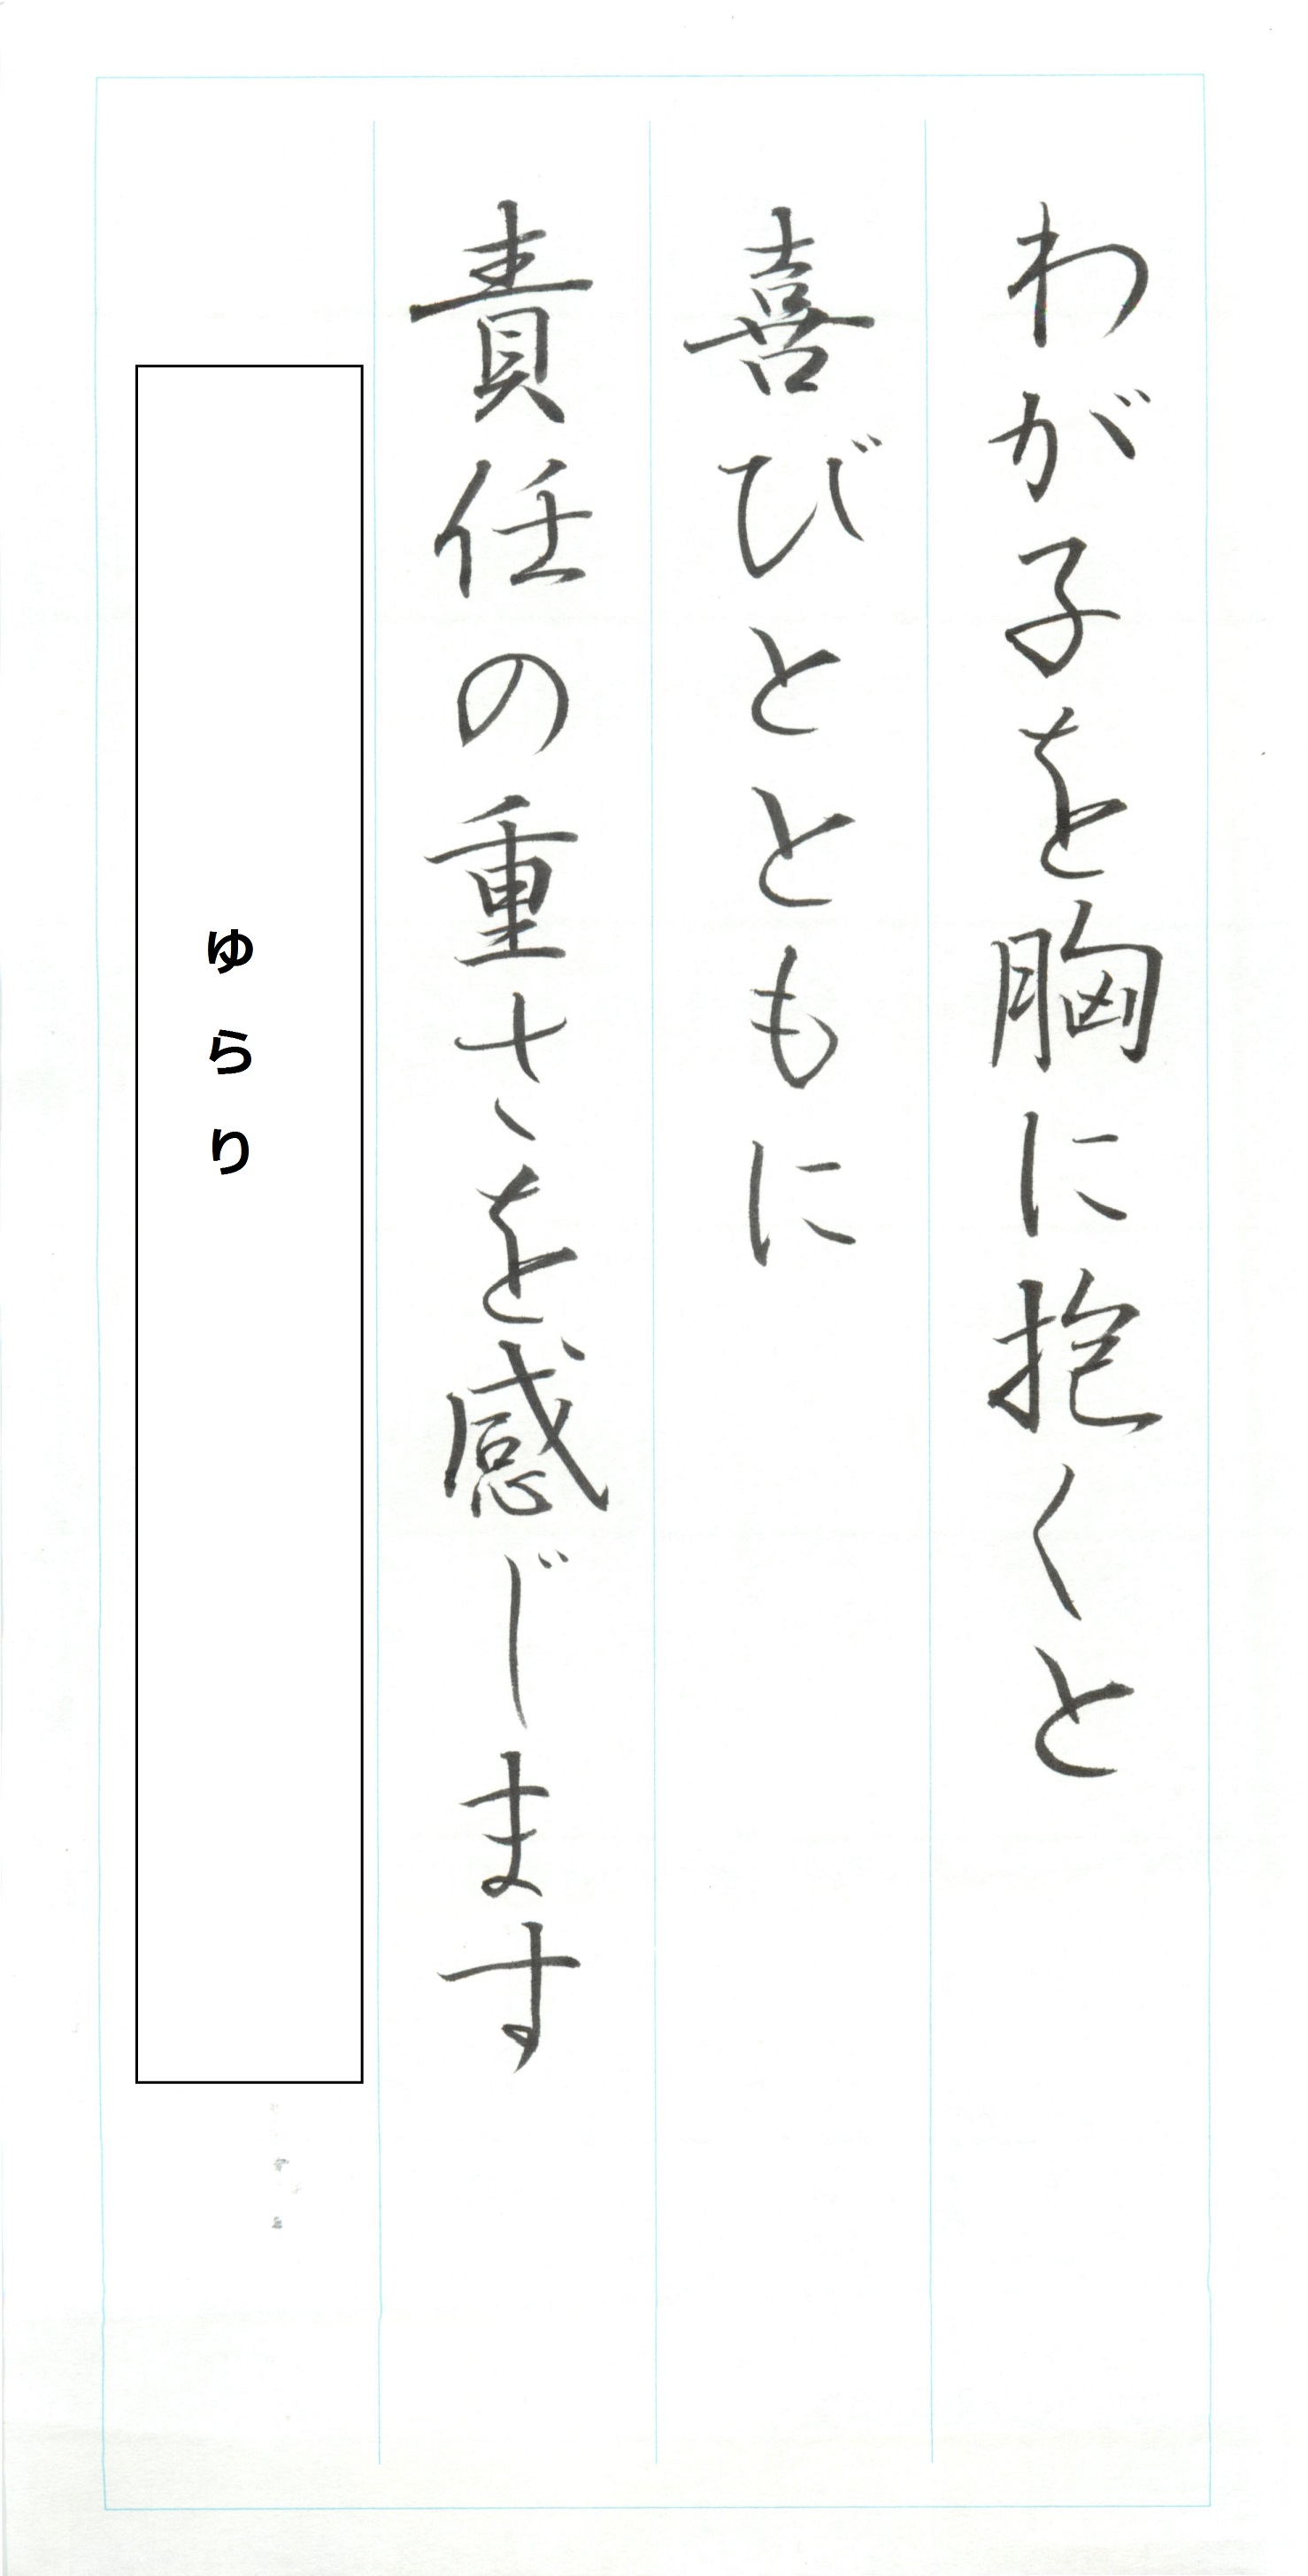 わが子を胸に抱くと
喜びとともに
責任の重さを感じます
ゆらり